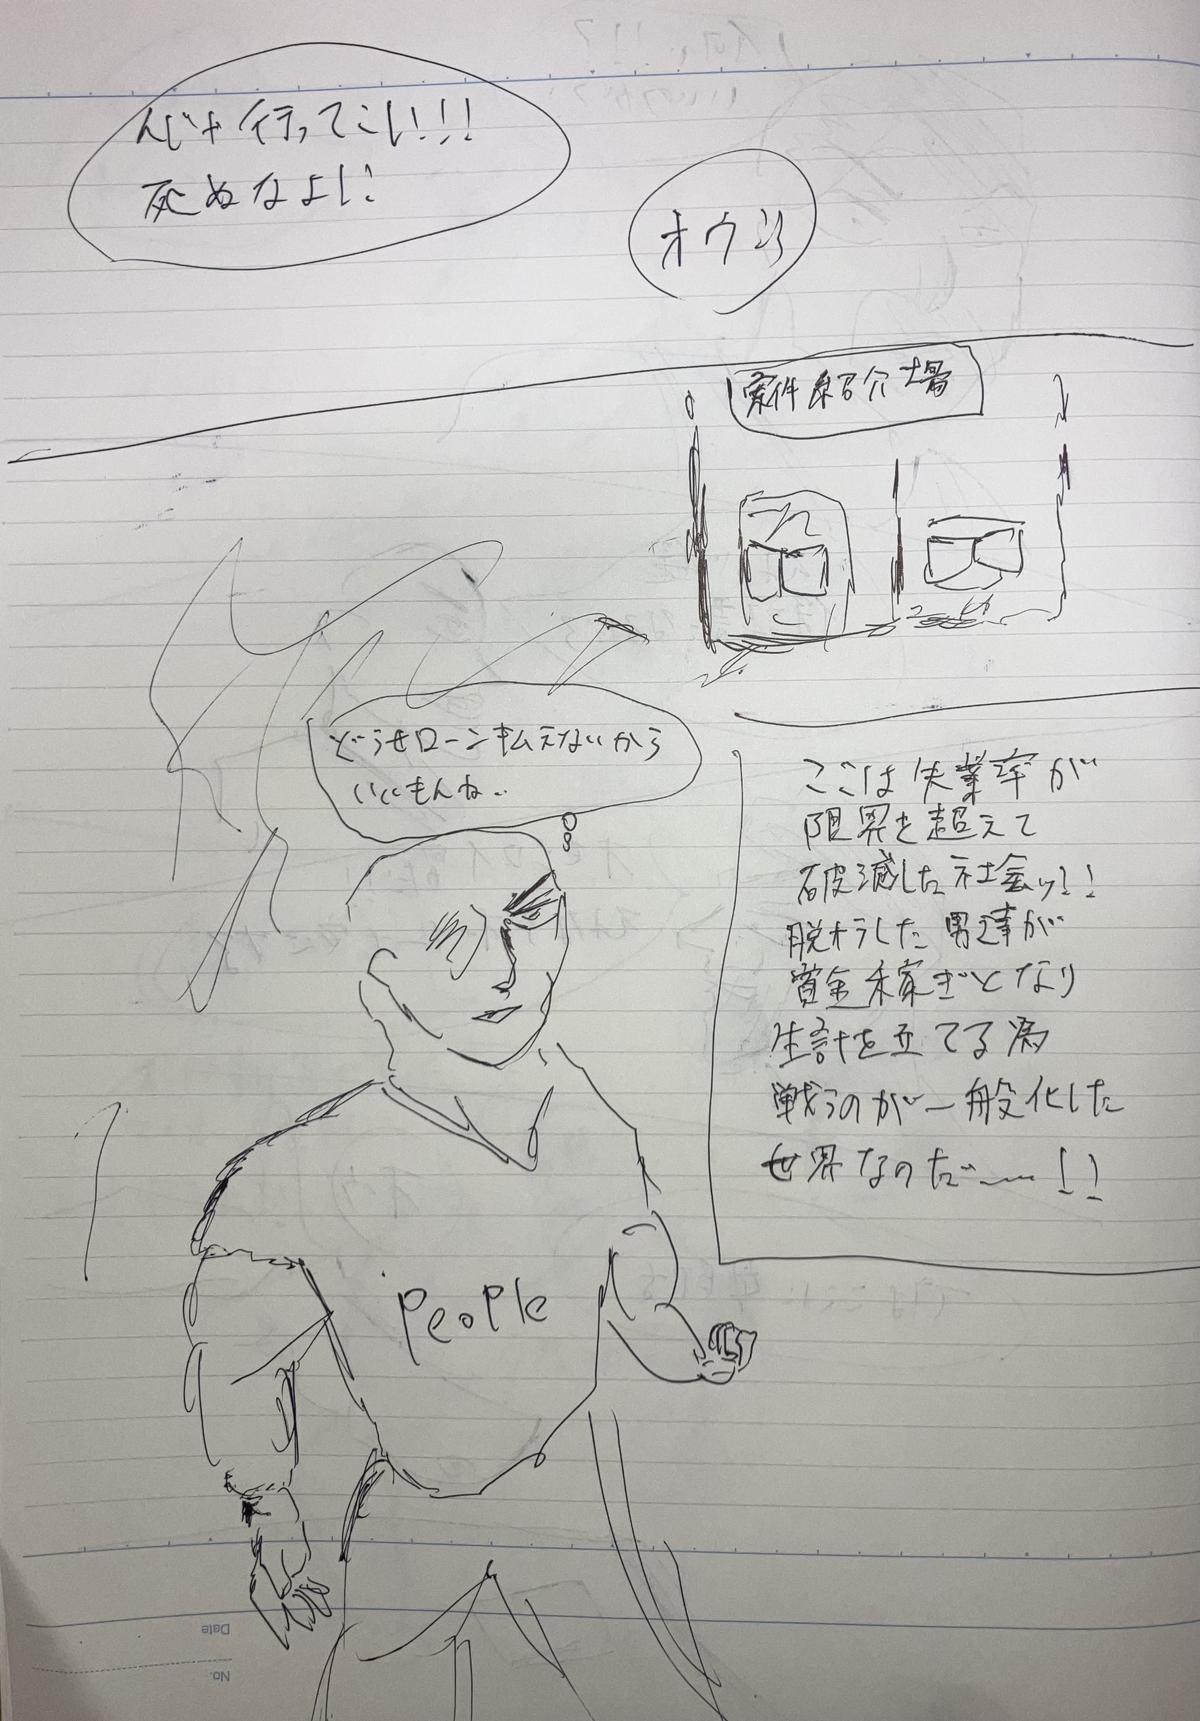 んじゃ行ってこい!!!
死ぬなよ!!
オウ!!
案件紹介場
どうせローン払えないから
いいもんね..
ここは失業率が
限界を超えて
破滅した社会ッ!!
脱サラした男達が
賞金稼ぎとなり
生計を立てる為
戦うのが一般化した
世界なのだ〜!!
People
Date
No.